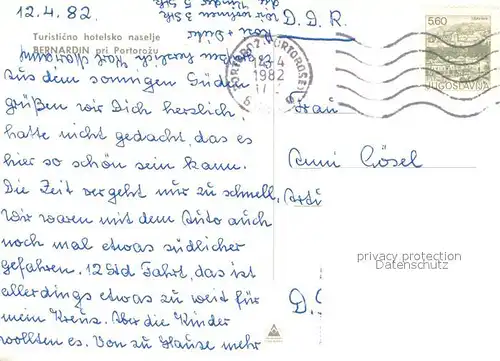 12.4.82
Turistično hotelsko naselje
BERNARDIN pri Portorožu
Aus dem sonnigen Süden
grüßen wir Dich herzlich,
hatte nicht gedacht, das es
hier so schön sein kann.
Die Zeit vergeht nur zu schnell.
Wir waren mit dem Auto auch
noch mal etwas südlicher
gefahren. 12 Std Fahrt, das ist
allerdings etwas zu weit für
mein Kreuz. Aber die Kinder
wollten es. Von zu Hause mehr
herzlich
wir wohnen 3 Std
D.D.R.
5,60
JUGOSLAVIJA
PORTOROŽ-PORTOROSE
12-4
1982
6320
Frau
Anni Gösel
privacy protection
Datenschutz
D.